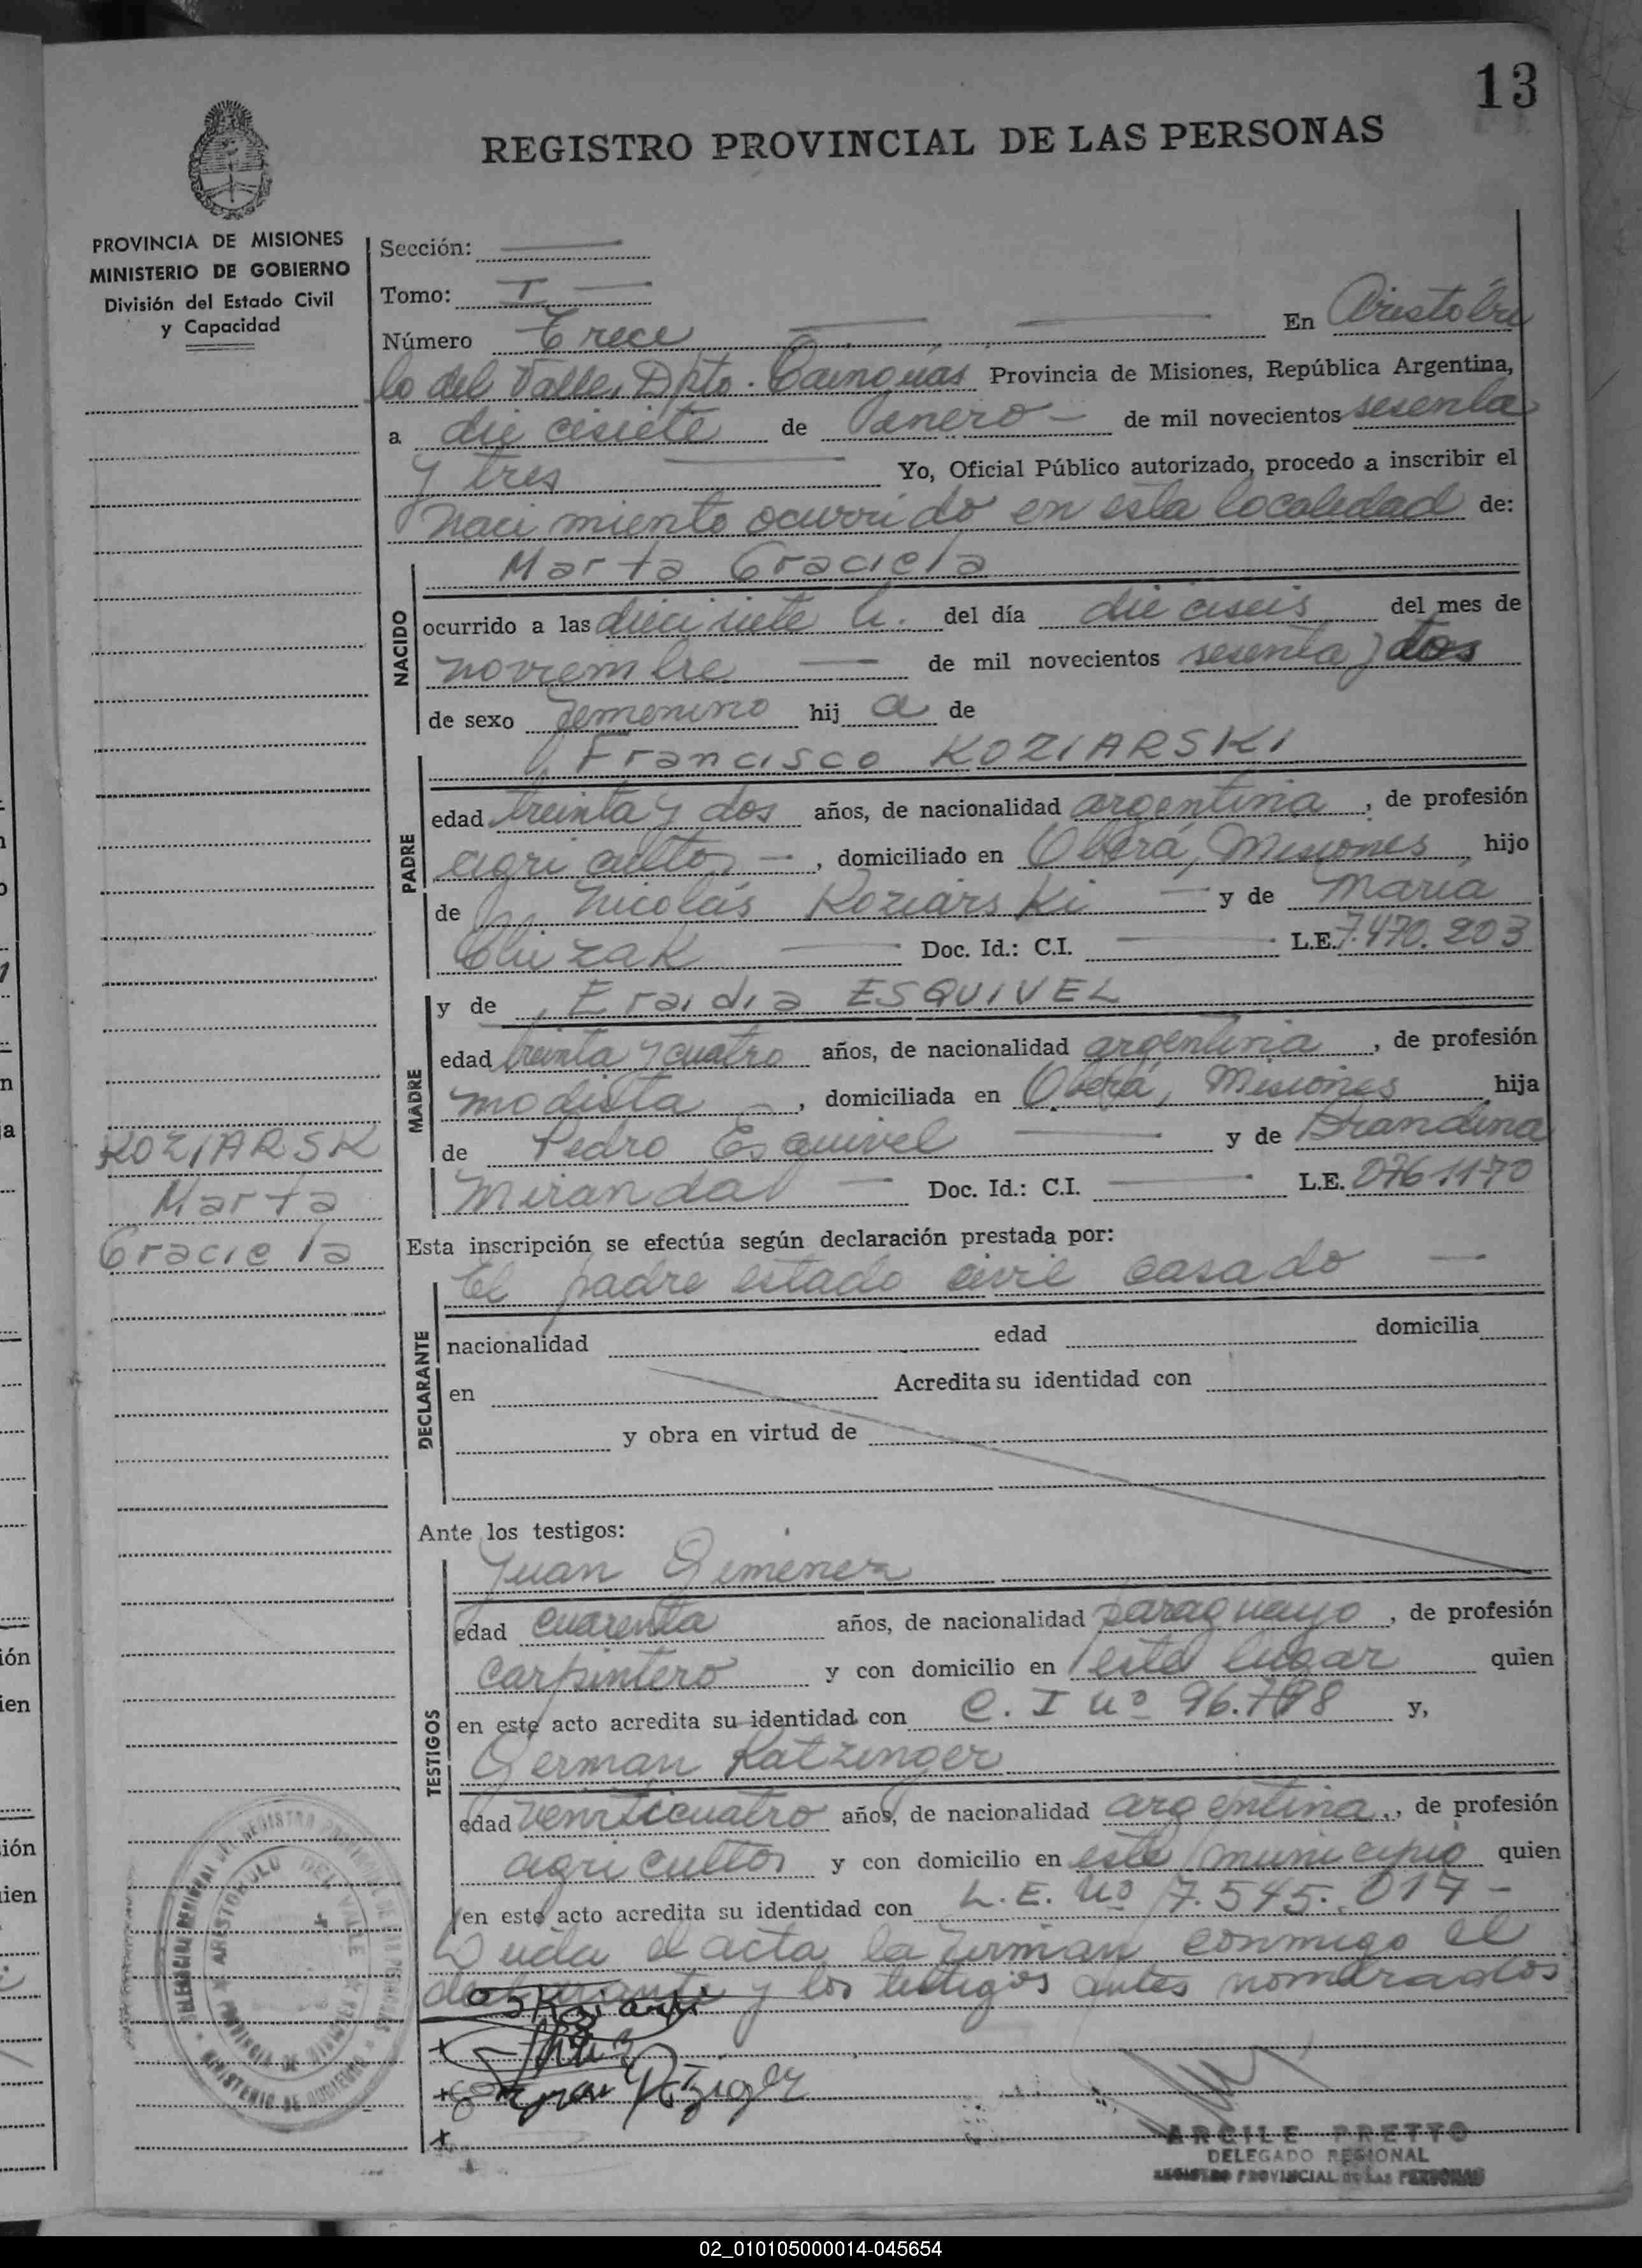 13
REGISTRO PROVINCIAL DE LAS PERSONAS
PROVINCIA DE MISIONES
MINISTERIO DE GOBIERNO
División del Estado Civil
y Capacidad
Sección:
Tomo: I
Número Trece En Aristóbu
lo del Valle, Dpto. Cainguás Provincia de Misiones, República Argentina,
a diecisiete de enero de mil novecientos sesenta
y tres Yo, Oficial Público autorizado, procedo a inscribir el
nacimiento ocurrido en esta localidad de:
NACIDO
Marta Graciela
ocurrido a las diecisiete h. del día dieciseis del mes de
noviembre de mil novecientos sesenta y dos
de sexo femenino hij a de
PADRE
Francisco KOZIARSKI
edad treinta y dos años, de nacionalidad argentina, de profesión
agricultor, domiciliado en Oberá, Misiones hijo
de Nicolás Koziarski y de María
Doc. Id.: C.I. L.E. 7.470.203
MADRE
y de Eraidia ESQUIVEL
edad treinta y cuatro años, de nacionalidad argentina, de profesión
modista, domiciliada en Oberá, Misiones hija
de Pedro Esquivel y de Brandina
Miranda Doc. Id.: C.I. L.E. 0761170
KOZIARSK
Marta
Graciela
Esta inscripción se efectúa según declaración prestada por:
DECLARANTE
El padre estado civil casado
nacionalidad edad domicilia
en Acredita su identidad con
y obra en virtud de
Ante los testigos:
TESTIGOS
Juan Gimenez
edad cuarenta años, de nacionalidad paraguayo, de profesión
carpintero y con domicilio en este lugar quien
en este acto acredita su identidad con C. I nº y,
German Katzinger
edad venticuatro años, de nacionalidad argentina, de profesión
agricultor y con domicilio en este municipio quien
en este acto acredita su identidad con L. E. Nº 7.545.017
el acta la firman conmigo el
declarante y los testigos antes nombrados
ARISTOBULO DEL VALLE
PROVINCIA DE MISIONES
MINISTERIO DE GOBIERNO
ARCILE PRETTO
DELEGADO REGIONAL
REGISTRO PROVINCIAL de LAS PERSONAS
02_010105000014-045654